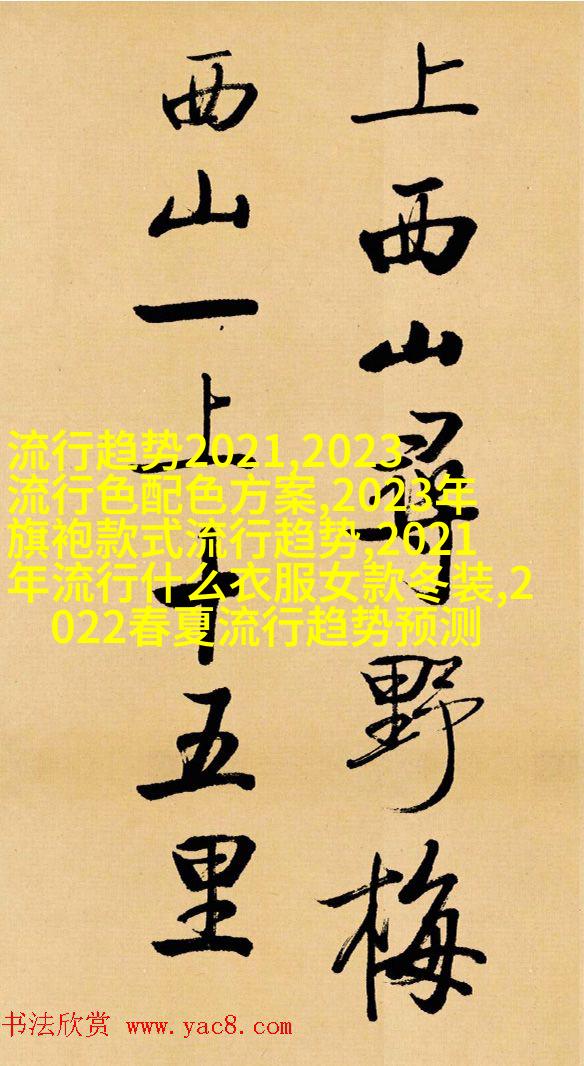 上西山尋野梅
西山一上十五里
流行趋势2021,2023
流行色配色方案,2023年
旗袍款式流行趋势,2021
年流行什么衣服女款冬装,2
022春夏流行趋势预测
书法欣赏 www.yac8.com